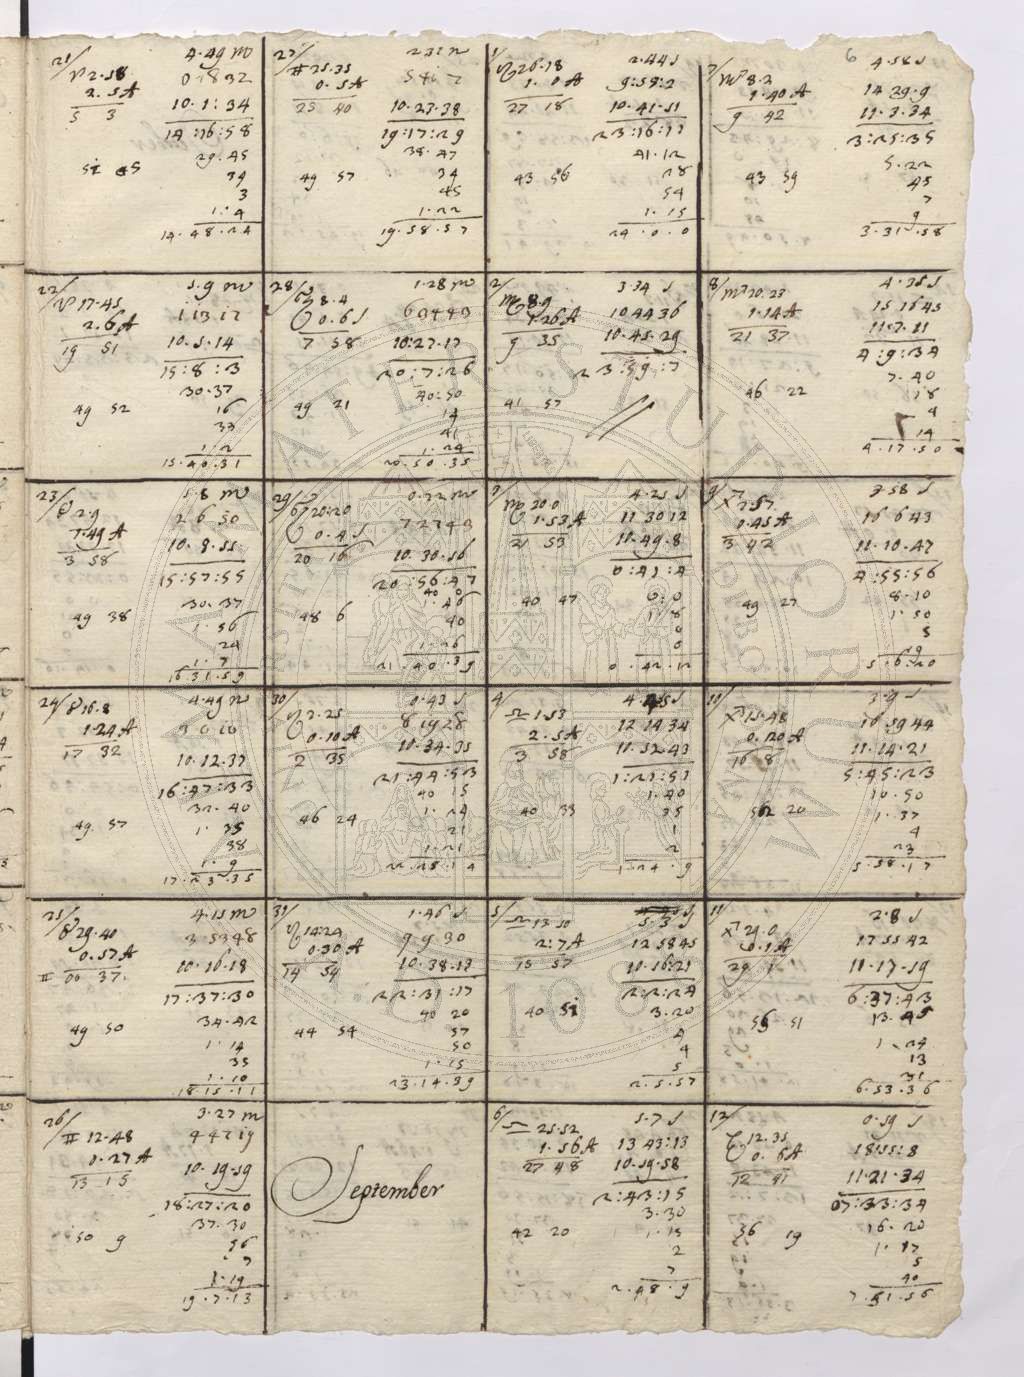 6
21/ 4.49 m
♈ 2.58 0 18 32
2.5 A
5 3 10.1:34
14:16:58
29.45
51 45 34
3
1.4
14.48.24
22/ 5.9 m
♈ 17.45 1 13 12
2.6 A
19 51 10.5.14
15:8:3
30.37
49 52 16
33
1.2
15.40.31
23/ 5.8 m
♉ 2.9 2 6 50
1.49 A
3 58 10.8.55
15:57:55
30.37
49 38 1.56
24
1.7
16 31.59
24/ 4.49 m
♉ 16.8
1.24 A
17 32 10.12.37
16:47:33
32.40
49.57 1.35
38
1.9
17.23.35
25/ 4.15 m
♉ 29.40 3 53 48
0.57 A
♊ 00 37. 10.16.18
17:37:30
34.42
49 50 1.14
35
1.10
18.15.11
26/ 3.27 m
♊ 12.48 4 47 19
0.27 A
13 15 10.19.59
18:27:20
37.30
50 9
7
1.19
19.7.13
27/ 2 31 m
♊ 25.35
0.5 A
25 40 10.23.38
19:17:29
38.47
49 57 34
45
1.22
19.58.57
28/ 1.28 m
♋ 8.4 6 34 49
0.6 S
7 58 10:27.17
20:7:26
40:50
49 21 14
41
1.24
20.50.35
29/ 0.22 m
♋ 20:20 7 27 49
0.4 S
20 16 10.30.56
20:56:47
40 0
48 6 1.46
40
1.26
21.40.39
30/ 0.43 S
♌ 2.25 8 19 28
0.10 A
2 35 10.34.35
21:44:53
40 15
46 24 1.24
21
1.21
22.25.14
31/ 1.46 S
♌ 14:24 9 9 30
0.30 A
14 54 10.38.13
22:31:17
40 20
44 54 57
50
1.15
23.14.39
September
1/ 2.44 S
♌ 26.18 9:59:2
1.0 A
27 18 10.41.51
23:16:11
41.12
43 56 28
54
1.15
24.0.0
2/ 3.34 S
♍ 8.9 10 44 36
1.26 A
9 35 10.45.29
23:59:7
41 57
3/ 4.25 S
♍ 20.0 11 30 12
1.53 A
21 53 11.49.8
0:41:4
0.0
40 47 1.8
0
0
0.42.12
4/ 4.45 S
♎ 1.53 12 14 34
2.5 A
3 58 11.52.43
1:21:51
1.40
40 33 35
1
2
1.24.9
5/ 5.3 S
♎ 13 50 12 58 45
2:7 A
15 57 10.16:21
2:2:24
3.20
40 51 4
4
5
2.5.57
6/ 5.7 S
♎ 25.52 13 43:13
1.56 A
27 48 10.59.58
2:43:15
3.30
42 20 1.15
2
7
2.48.9
7/ 4.58 S
♏ 8.2 14 29.9
1.40 A
9 42 11.3.34
3:25:35
5.22
43 59 45
7
9
3.31.58
8/ 4.35 S
♏ 20.23 15 16 45
1.14 A
21 37 11.7.11
4:9:34
7.40
46 22 18
4
14
4.17.50
9/ 3.58 S
♐ 2.57 16 6 43
0.45 A
3 42 11.10.47
4:55:56
8.10
49 27 1.50
5
19
5.6.20
10/ 3.9 S
♐ 15.48 16 59 44
0.20 A
16 8 11.14.21
5:45:23
10.50
52 20 1.37
4
23
5.58.17
11/ 2.8 S
♐ 29.0 17 55 42
0.1 A
29 1 11.17.59
6:37:43
13.45
55 51 1.24
13
31
6.53.36
12/ 0.59 S
12.35 18:55:8
0.6 A
12 41 11.21.34
07:33:34
16.20
56 19 1.17
5
40
7.51.56